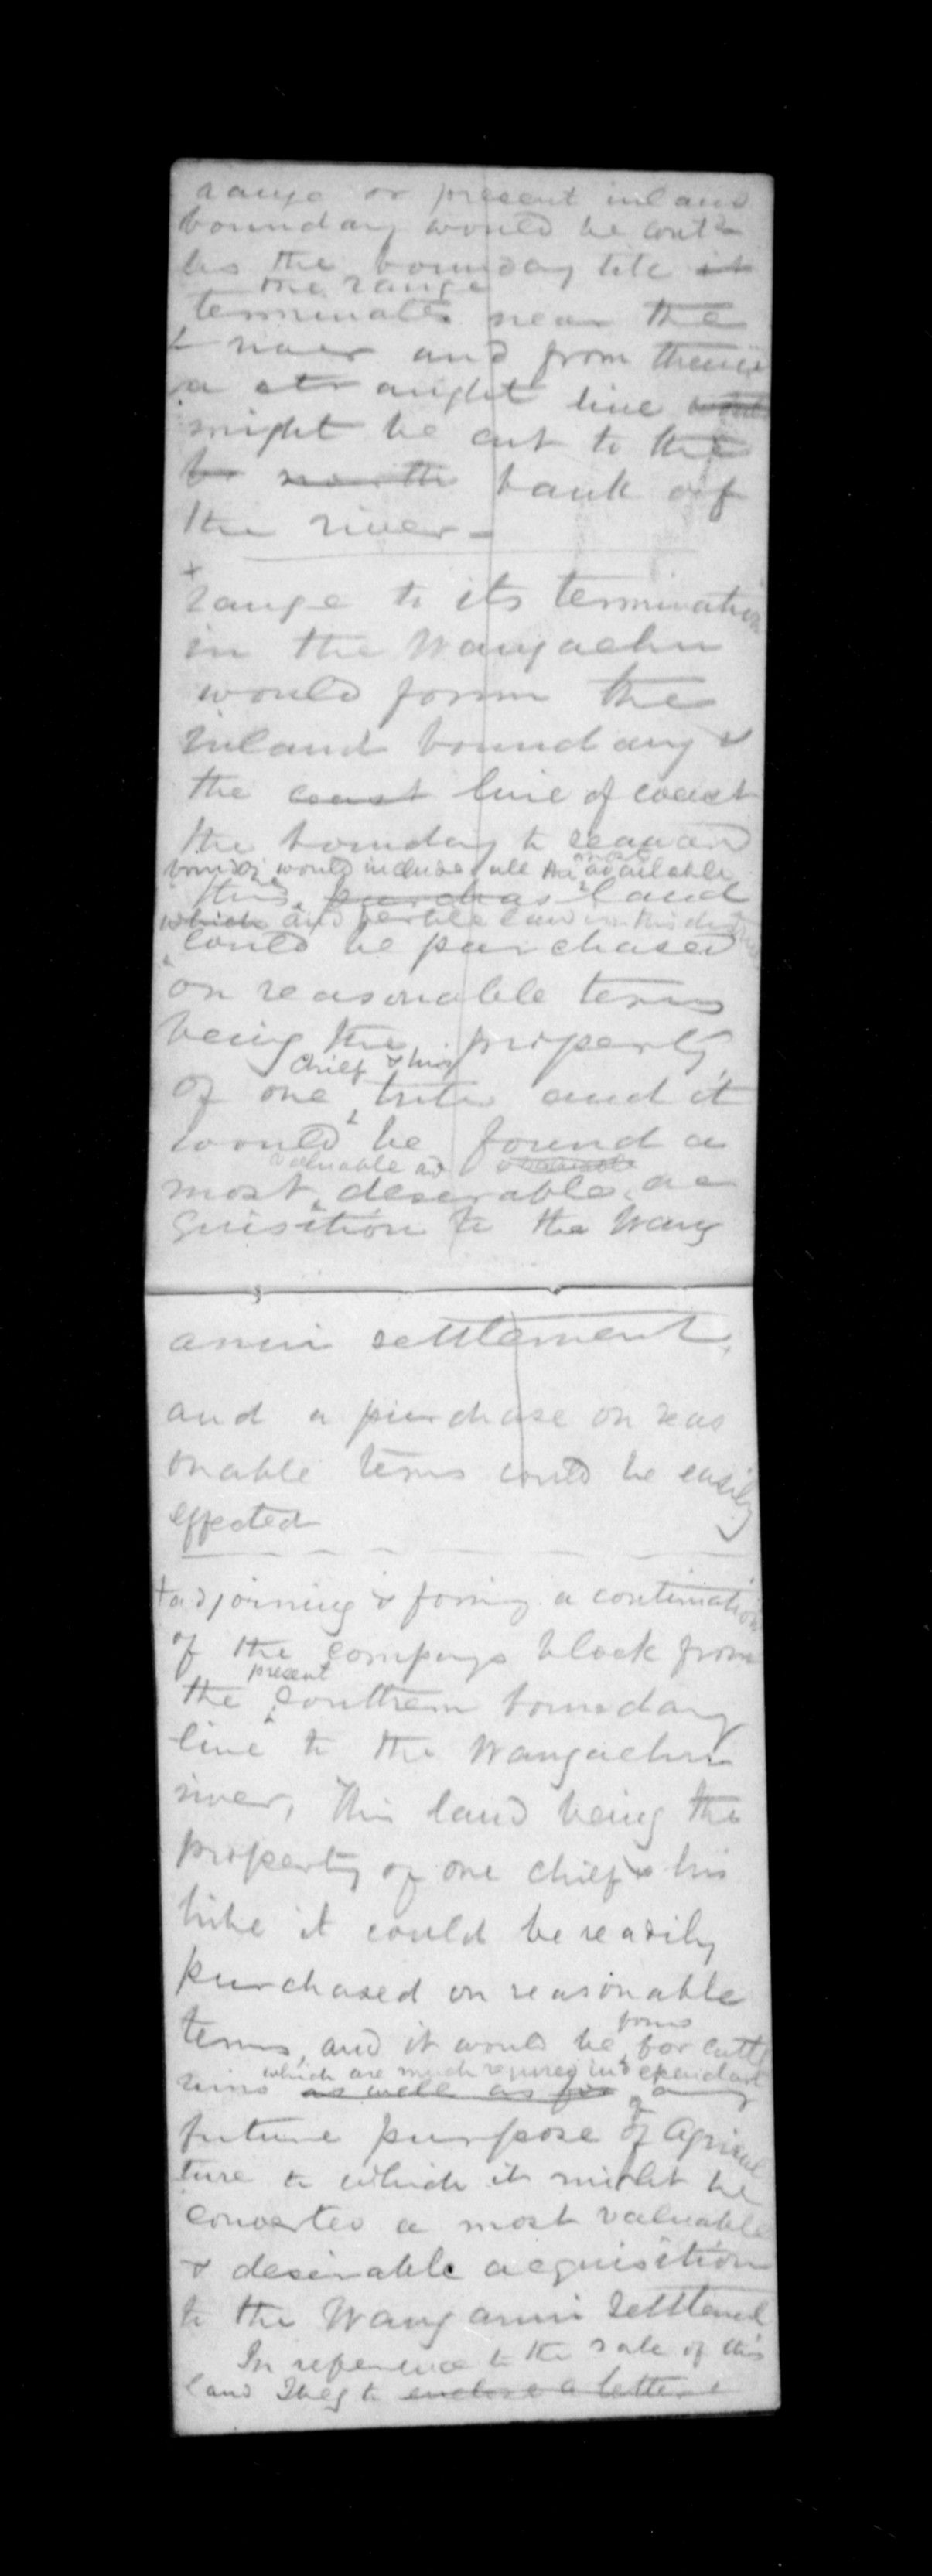 range or present inland
boundary would be contd
as the boundary till it
the range
terminates near the
river and from thence
a straight line
might be cut to the
north bank of
the river –
range to its termination
in the Wangaehu
would form the
inland boundary &
the coast line of coast
the bounday to seaward
would include all the available
this purchas land
which and fertile land in this district
could be purchased
on reasonable terms
being the property
chief & his
of one tribe and it
would be found a
valuable and valuable
most desirable ac
quisition to the Wang
anui settlement.
and a purchase on reas
onable terms could be easily
effected
+ adjoining & foming a continuation
of the compnys block from
present
the southern boundary
line to the Wangaehu
river, This land being the
property of one chief & his
tribe it could be readily
purchased on reasonable
terms, and it would be for catt
which are much required independant
runs as well as for any
future purpose of Agricul
ture to which it might be
converted a most valuable
& desirable acquisition
to the Wanganui Settlement
In reference to the sale of this
land I beg to enclose a letter